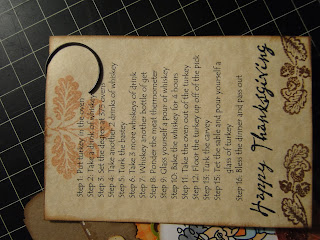 Step 1: Put turkey in the oven
Step 2: Take a drink of whiskey
Step 3: Set the degree at 375 ovens
Step 4: Take another 2 drinks of whiskey
Step 5: Turk the bastey
Step 6: Take 4 more whiskeys of drink
Step 7: Whiskey another bottle of get
Step 8: Ponder the meat thermometer
Step 9: Glass yourself a pour of whiskey
Step 10: Bake the whiskey for 4 hours
Step 11: Take the oven out of the turkey
Step 12: Floor the turkey up off of the pick
Step 13: Turk the carvey
Step 15: Tet the sable and pour yourself a
glass of turkey
Step 16: Bless the dinner and pass out
Happy Thanksgiving